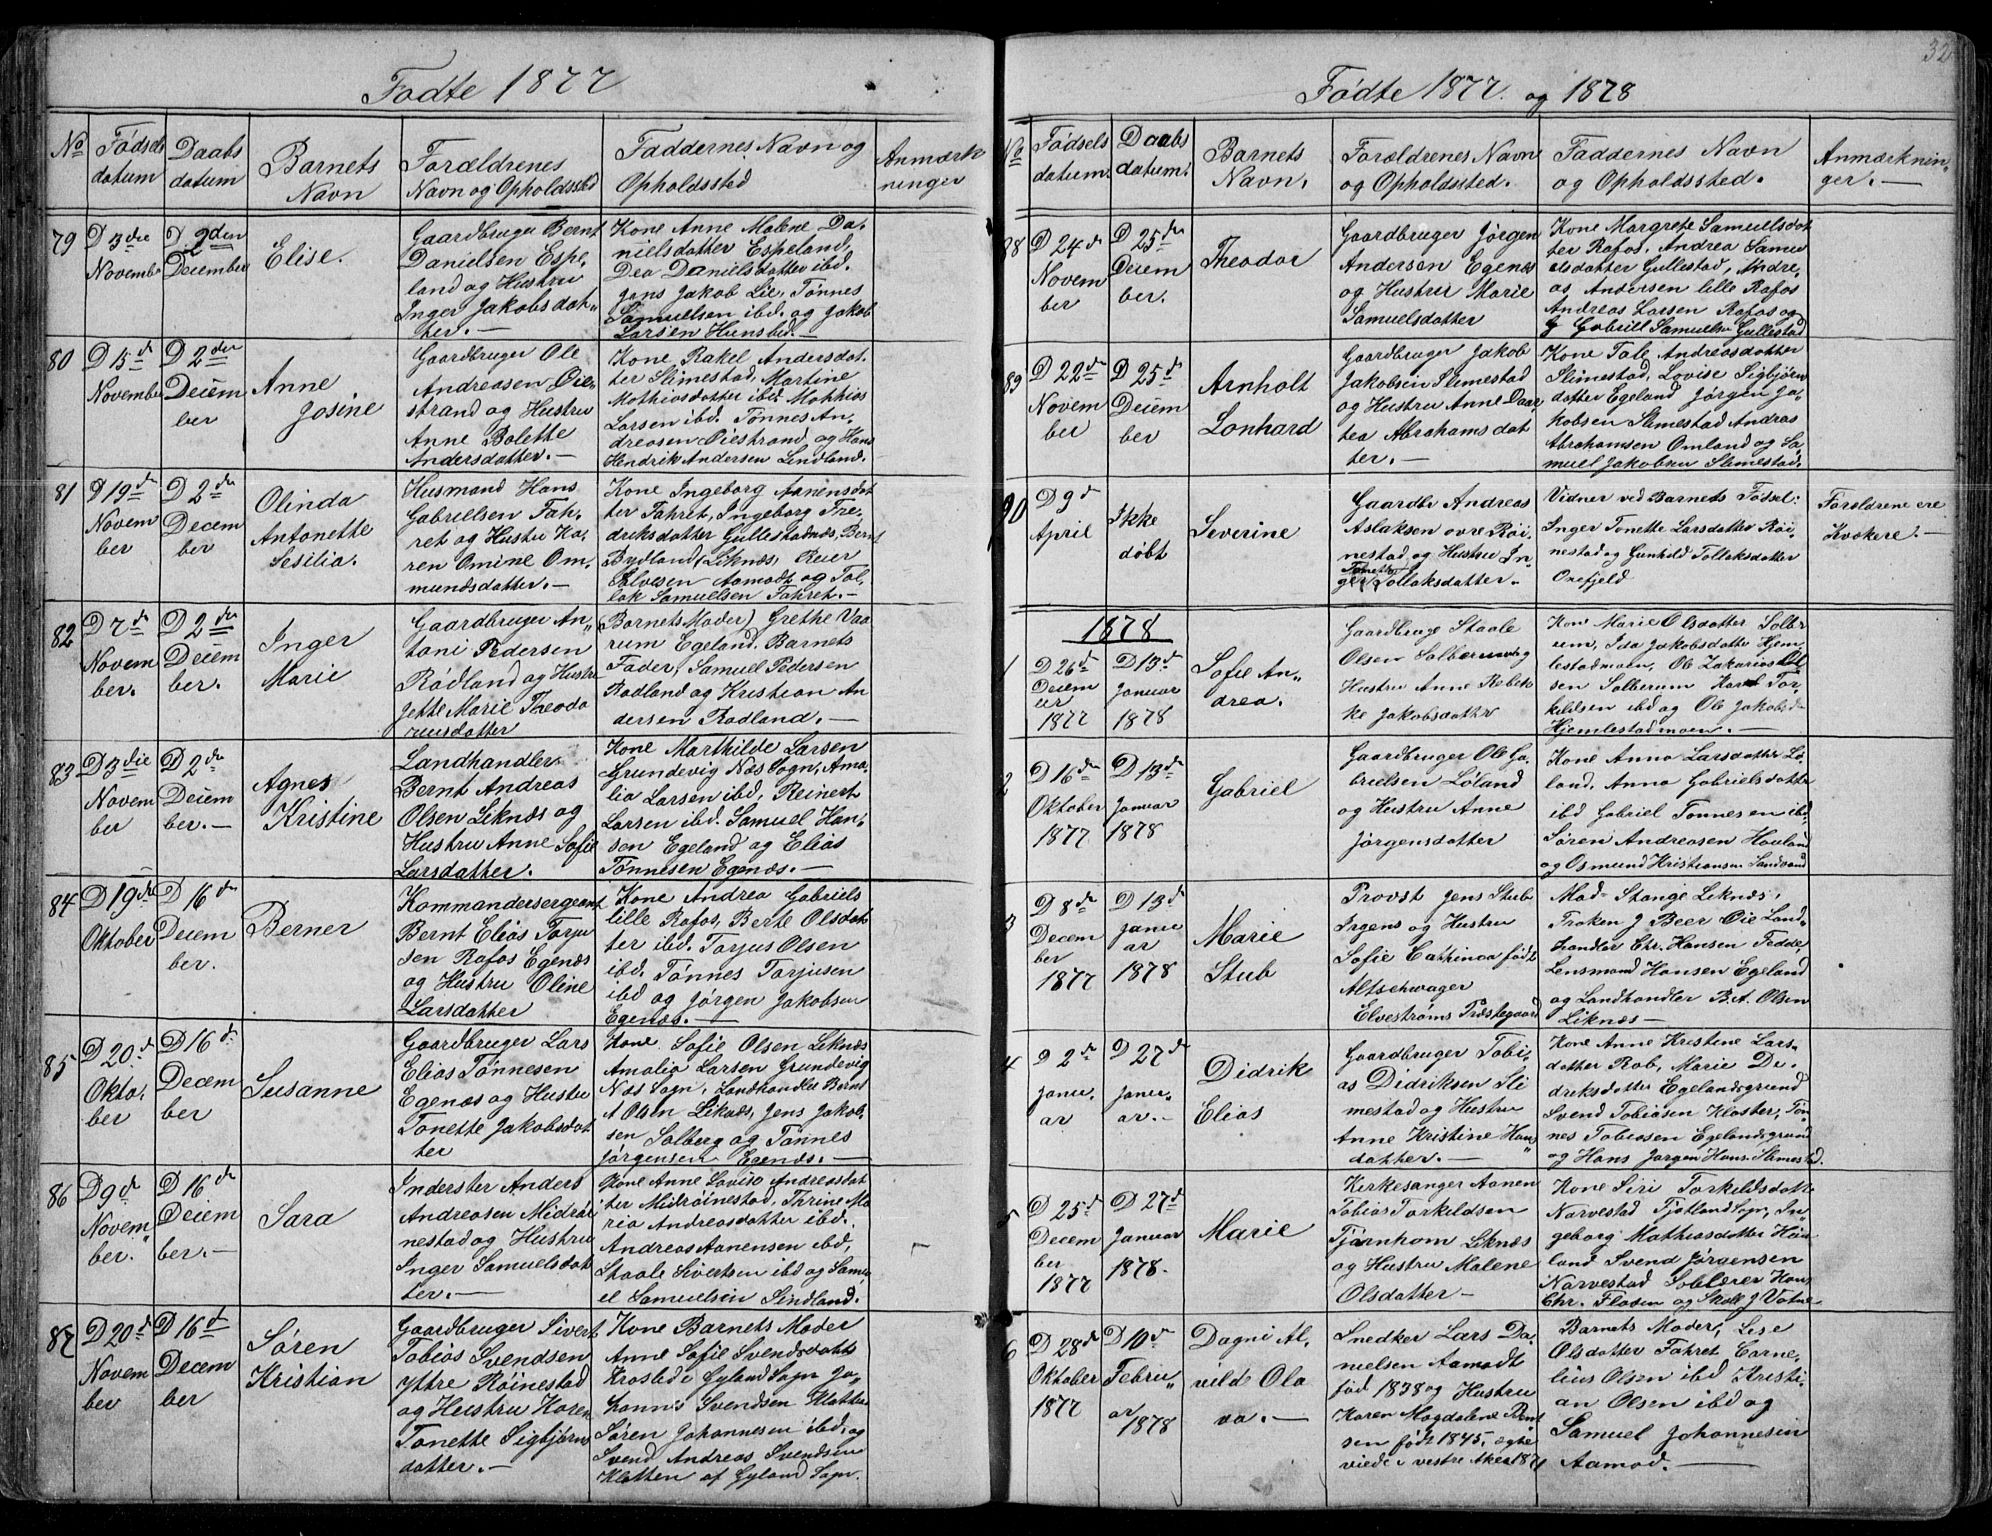 Fødte 1877
No
Fødsels
datum
Daabs
datum
Barnets
Navn
Forældrenes
Navn og Opholdssted
Faddernes Navn og
Opholdssted
Anmærk
ninger
79
D 3die
November
D 2den
December
Elise.
Gaardbruger Bernt
Danielsen Espe„
land og Hustru
Inger Jakobsdat„
ter.—
Kone Anne Malene Da„
nielsdatter Espeland,
Dea Danielsdatter ibd.
Jens Jakob Lie, Tønnes
Samuelsen ibd. og Jakob
Larsen Hunsbed.—
80
D 15d
November
D 2den
Decem
ber
Anne
Josine
Gaardbruger Ole
Andreasen Øie„
strand og Hustru
Anne Bolette
Andersdatter.—
Kone Rakel Andersdat„
ter Slimestad, Martine
Mathiasdatter ibd Mathias
Larsen ibd. Tønnes An„
dreasen Øiestrand og Hans
Hendrik Andersen Lindland.
81
D 19d
Novem
ber
D 2den
Decem
ber
Olinda
Antonette
Sesilia.
Husmand Hans
Gabrielsen Fah„
ret og Hustru Ka„
ren Omine Om„
mundsdatter.—
Kone Ingeborg Aanensdat
ter Fahret, Ingeborg Fre„
driksdatter Gullestadnæs, Bernt
Bydland, Liknæs, Peter
Salvesen Aamodt og Tol„
lak Samuelsen Fahret.—
82
D 7d
Novem
ber.
D 2den
Decem
ber.
Inger
Marie
Gaardbruger An„
toni Pedersen
Rødland og Hustru
Jette Marie Theodo
riusdatter
(Barnets Moder) Grethe Vaa
rum Egeland. Barnets
Fader, Samuel Pedersen
Rødland og Kristian An
dersen Rødland.—
83
D 3die
Novem
ber
D 2den
Decem
ber.—
Agnes
Kristine
Landhandler
Bernt Andreas
Olsen Liknæs og
Hustru Anne Sofie
Larsdatter.
Kone Marthilde Larsen
Grundevig Næs Sogn, Ama„
lia Larsen ibd. Reinert
Larsen ibd. Samuel Han„
sen Egeland og Elias
Tønnesen Egenæs.—
84
D 19de
Oktober
D 16de
Decem
ber.
Berner
Kommandersergeant
Bernt Elias Torju
sen Rafos Egenæs
og Hustru Oline
Larsdatter
Kone Andrea Gabriels
lille Rafos, Berte Olsdat
ter ibd. Torjus Olsen
ibd. Tønnes Torjusen
ibd og Jørgen Jakobsen
Egenæs.—
85
D 20d
Okto„
ber
D 16d
Decem
ber
Susanne
Gaardbruger Lars
Elias Tønnesen
Egenæs og Hustru
Tonette Jakobsdat
ter
Kone Sofie Olsen Liknæs
Amalia Larsen Grundevig
Næs Sogn, Landhandler Bernt
A Olsen Liknæs, Jens Jakob„
sen Solberg og Tønnes
Jørgensen Egenæs.—
86
D 9d
Novem„
ber.
D 16d
Decem
ber.—
Sara
Inderster Anders
Andreasen Midtrøi
nestad og Hustru
Inger Samuelsdat
ter.—
Kone Anne Lovise Andreasdat
ter Midtrøinestad, Thrine Ma
ria Andreasdatter ibd.
Andreas Aanensen ibd,
Staale Sivertsen ibd og Samu
el Samuelsen Lindland.
87
D 20d
Novem
ber
D 16d
Decem
ber
Søren
Kristian
Gaardbruger Sivert
Tobias Svendsen
yttre Røinestad
og Hustru Karen
Tonette Sigbjørns
datter.—
Kone Barnets Moder
Anne Sofie Svendsdatter
Gyland Sogn Jo„
hannes Svendsen Klatten
Søren Johannesen ibd. og
Svend Andreas Svendsen
Klatten af Gyland Sogn.
32
Fødte 1877. og 1878
No
Fødsels
datum.
Daabs
datum.
Barnets
Navn.
Forældrenes Navn
og Opholdssted.
Faddernes Navn
og Opholdssted.
Anmærknin„
ger.—
88
D 24d
Novem
ber
D 25de
Decem
ber.
Theodor
Gaardbruger Jørgen
Andersen Egenæs
og Hustru Marie
Samuelsdatter
Kone Margrete Samuelsdat
ter Rafos, Andrea Samu
elsdatter Gullestad, Andre„
as Andersen lille Rafos
Andreas Larsen Rafos og
Gabriel Samuelsen Gullestad
89
D 22d
Novem
ber
D 25d
Decem
ber
Arnholt
Lonhard
Gaardbruger Jakob
Jakobsen Slimestad
og Hustru Anne Daar
tea Abrahamsdat
ter.—
Kone Tale Andreasdatter
Slimestad, Lovise Sigbjørn
datter Egeland Jørgen Ja„
kobsen Slimestad Andreas
Abrahamsen Omland og Sa„
muel Jakobsen Slimestad.
90
D 9d
April
Ikke
døbt
Severine
Gaardbr Andreas
Aslaksen øvre Røi„
nestad og Hustru In„
Tonette
ger Tollaksdatter.
Vidner ved Barnets Fødsel:
Inger Tonette Larsdatter Røi
nestad og Gunhild Tollaksdatter
Orefjeld
Forældrene ere
Kvækere.—
1878
1
D 26d
Decem
ber
1877
D 13d
Januar
1878
Sofie An„
drea.
Gaardbruger Staale
Olsen Solberum og
Hustru Anne Rebek
ke Jakobsdatter
Kone Marie Olsdatter Solbe
rum, Ida Jakobsdatter Hjem
lestadmoen, Ole Zakarias Ol
sen Solberum Karl Tor„
kildsen ibd og Ole Jakobsen
Hjemlestadmoen.—
2
D 16de
Oktober
1877
D 13d
Januar
1878
Gabriel
Gaardbruger Ole Ga„
brielsen Løland
og Hustru Anne
Jørgensdatter
Kone Anna Larsdatter Lø
land. Anna Gabrielsdatter
ibd Gabriel Tønnesen ibd.
Søren Andreasen Houland
og Osmund Kristiansen Sandvand
3
D 8de
Decem
ber
1877
D 13d
Janu
ar
1878
Marie
Stub
Provst Jens Stub
Irgens og Hustru
Sofie Cathinca født
Altschwager
Elvestrøms Præstegaard
Mad. Stange Liknæs,
Frøken J Beer Øie Land„
handler Chr. Hansen Fedde
Lensmand Hansen Egeland
og Landhandler B. A. Olsen
Liknæs—
4
D 2d
Janu„
ar
D 27d
Janu„
ar.—
Didrik
Elias
Gaardbruger Tobi„
as Didriksen Sli
mestad og Hustru
Anne Kristine Hans
datter.—
Kone Anne Kristine Lars„
datter Rob, Marie Di„
driksdatter Egelandsgrund
Svend Tobiasen Kloster, Tøn
nes Tobiasen Egelandsgrund
og Hans Jørgen Hans. Slimestad.
5
D 25d
Decem
ber
1877
D 27d
Januar
1878.
Marie
Kirkesanger Aanen
Tobias Torkildsen
Tjørnhom Liknæs
og Hustru Malene
Olsdatter—
Kone Siri Torkildsdatter
Narvestad Fjotland Sogn, In„
geborg Mathiasdatter Hau
land Svend Jørgensen
Narvestad Soblærer Hans
Chr. Flosen og Skoll J Votne
6
D 28d
Oktober
1877
D 10d
Febru„
ar
1878
Dagni Al„
vilde Ola
va.—
Snedker Lars Da„
nielsen Aamodt
født 1838 og Hustru
Karen Magdalene Bent
sen født 1845, ægte
viede i vestre Aker 1871
Barnets Moder, Lise
Olsdatter Fahret Corne„
lius Olsen ibd Kristi„
an Olsen ibd og
Samuel Johannesen
Aamod.—